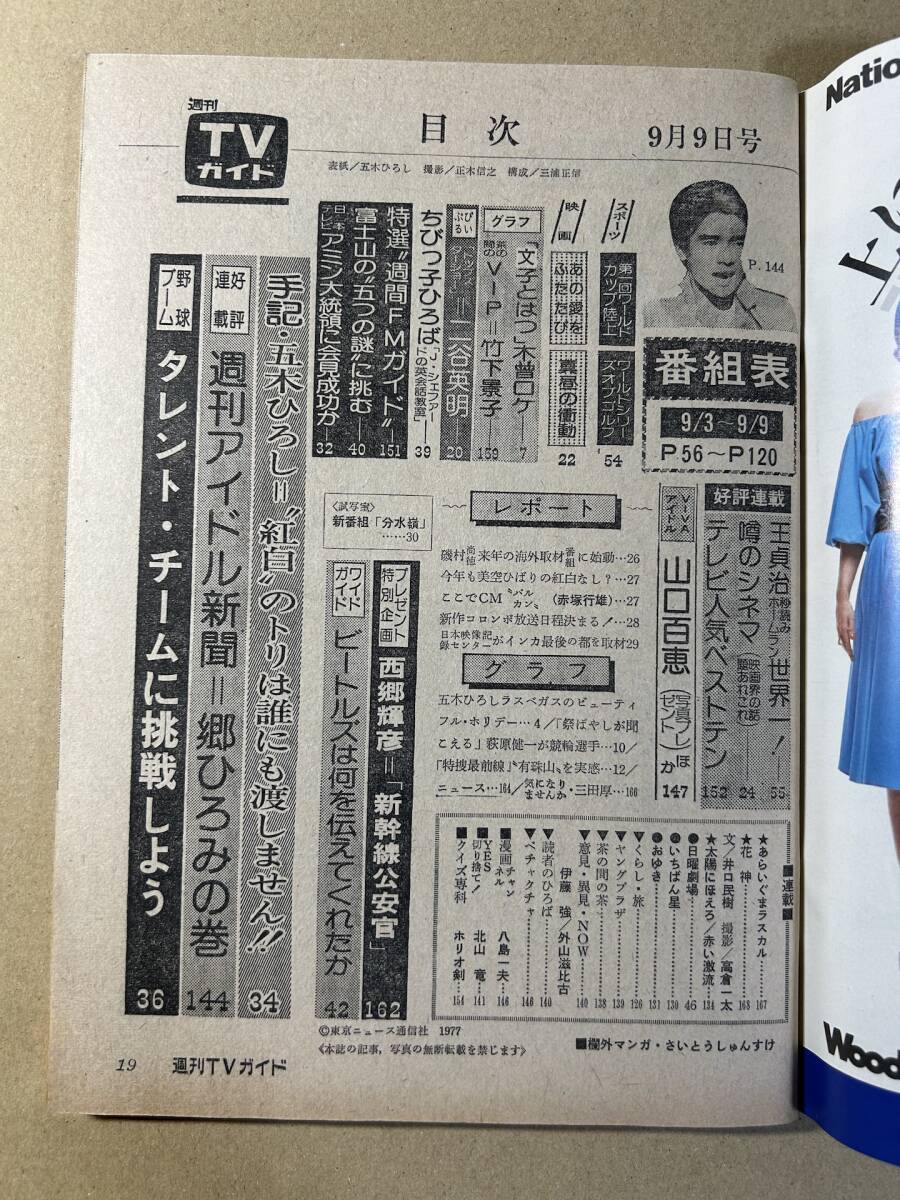 週刊
TV
ガイド
目次
9月9日号
表紙/五木ひろし 撮影/正木信之 構成/三浦正信
P.144
番組表
9/3〜9/9
P56〜P120
スポーツ
第一回ワールドカップ陸上
ワールドシリーズオブゴルフ
54
映画
あの愛をふたたび
真昼の衝動
22
グラフ
「文子とはつ」木曽ロケ
7
茶の間のVIP=竹下景子
159
ぴいぷる
=二谷英明
20
ちびっ子ひろば
「J・シェファードの英会話教室」
39
特選"週間FMガイド"
151
富士山の"五つの謎"に挑む
40
日本テレビ アミン大統領に会見成功か
32
手記・五木ひろし="紅白"のトリは誰にも渡しません!!
34
好評連載
週刊アイドル新聞=郷ひろみの巻
144
野球ブーム
タレント・チームに挑戦しよう
36
好評連載
王貞治 秒読みホームラン 世界一!
55
噂のシネマ(映画界の話題あれこれ)
24
テレビ人気ベストテン
152
VIVAアイドル
山口百恵(写真プレゼント)ほか
147
レポート
磯村尚徳来年の海外取材番組に始動…26
今年も美空ひばりの紅白なし?…27
ここでCM"バルカン"(赤塚行雄)…27
新作コロンボ放送日程決まる!…28
日本映像記録センターがインカ最後の都を取材29
グラフ
五木ひろしラスベガスのビューティ
フル・ホリデー…4/「祭ばやしが聞
こえる」萩原健一が競輪選手…10/
「特捜最前線」"有珠山"を実感…12/
ニュース…164/気になりませんか・三田厚…166
〈試写室〉
新番組「分水嶺」
……30
プレゼント特別企画
西郷輝彦=「新幹線公安官」
162
ワイドガイド
ビートルズは何を伝えてくれたか
42
■連載■
★あらいぐまラスカル…167
★花神…168
文/井口民樹 撮影/高倉一太
★太陽にほえろ/赤い激流…134
●日曜劇場…46
●いちばん星…130
●おゆき…131
▼くらし・旅…126
▼ヤングプラザ…139
▼茶の間の茶…138
▼意見・異見・NOW…140
伊藤強/外山滋比古
▼読者のひろば…140
▼ペチャクチャ…146
■漫画チャンネル 八島一夫…146
■YES切り捨て! 北山竜…141
■クイズ専科 ホリオ剣…154
©東京ニュース通信社 1977
〈本誌の記事,写真の無断転載を禁じます〉
■欄外マンガ・さいとうしゅんすけ
19 週刊TVガイド
Natio
Wood